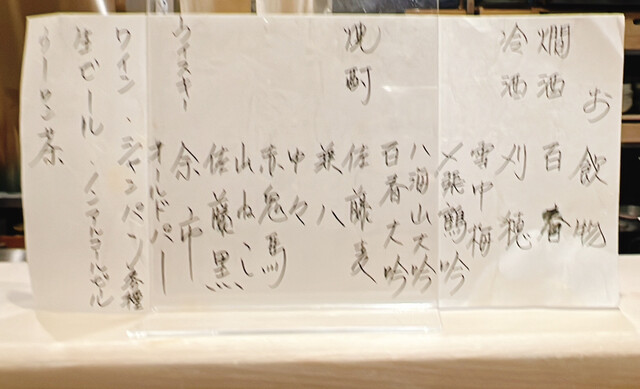 お飲物
燗酒 百春
冷酒 刈穂
雪中梅
〆張鶴吟
八海山大吟
百春大吟
焼酎 佐藤麦
兼八
中々
赤兎馬
山ねこ
佐藤黒
ウイスキー 余市
オールドパー
ワイン、シャンパン各種
生ビール、ノンアルコールビール
ウーロン茶